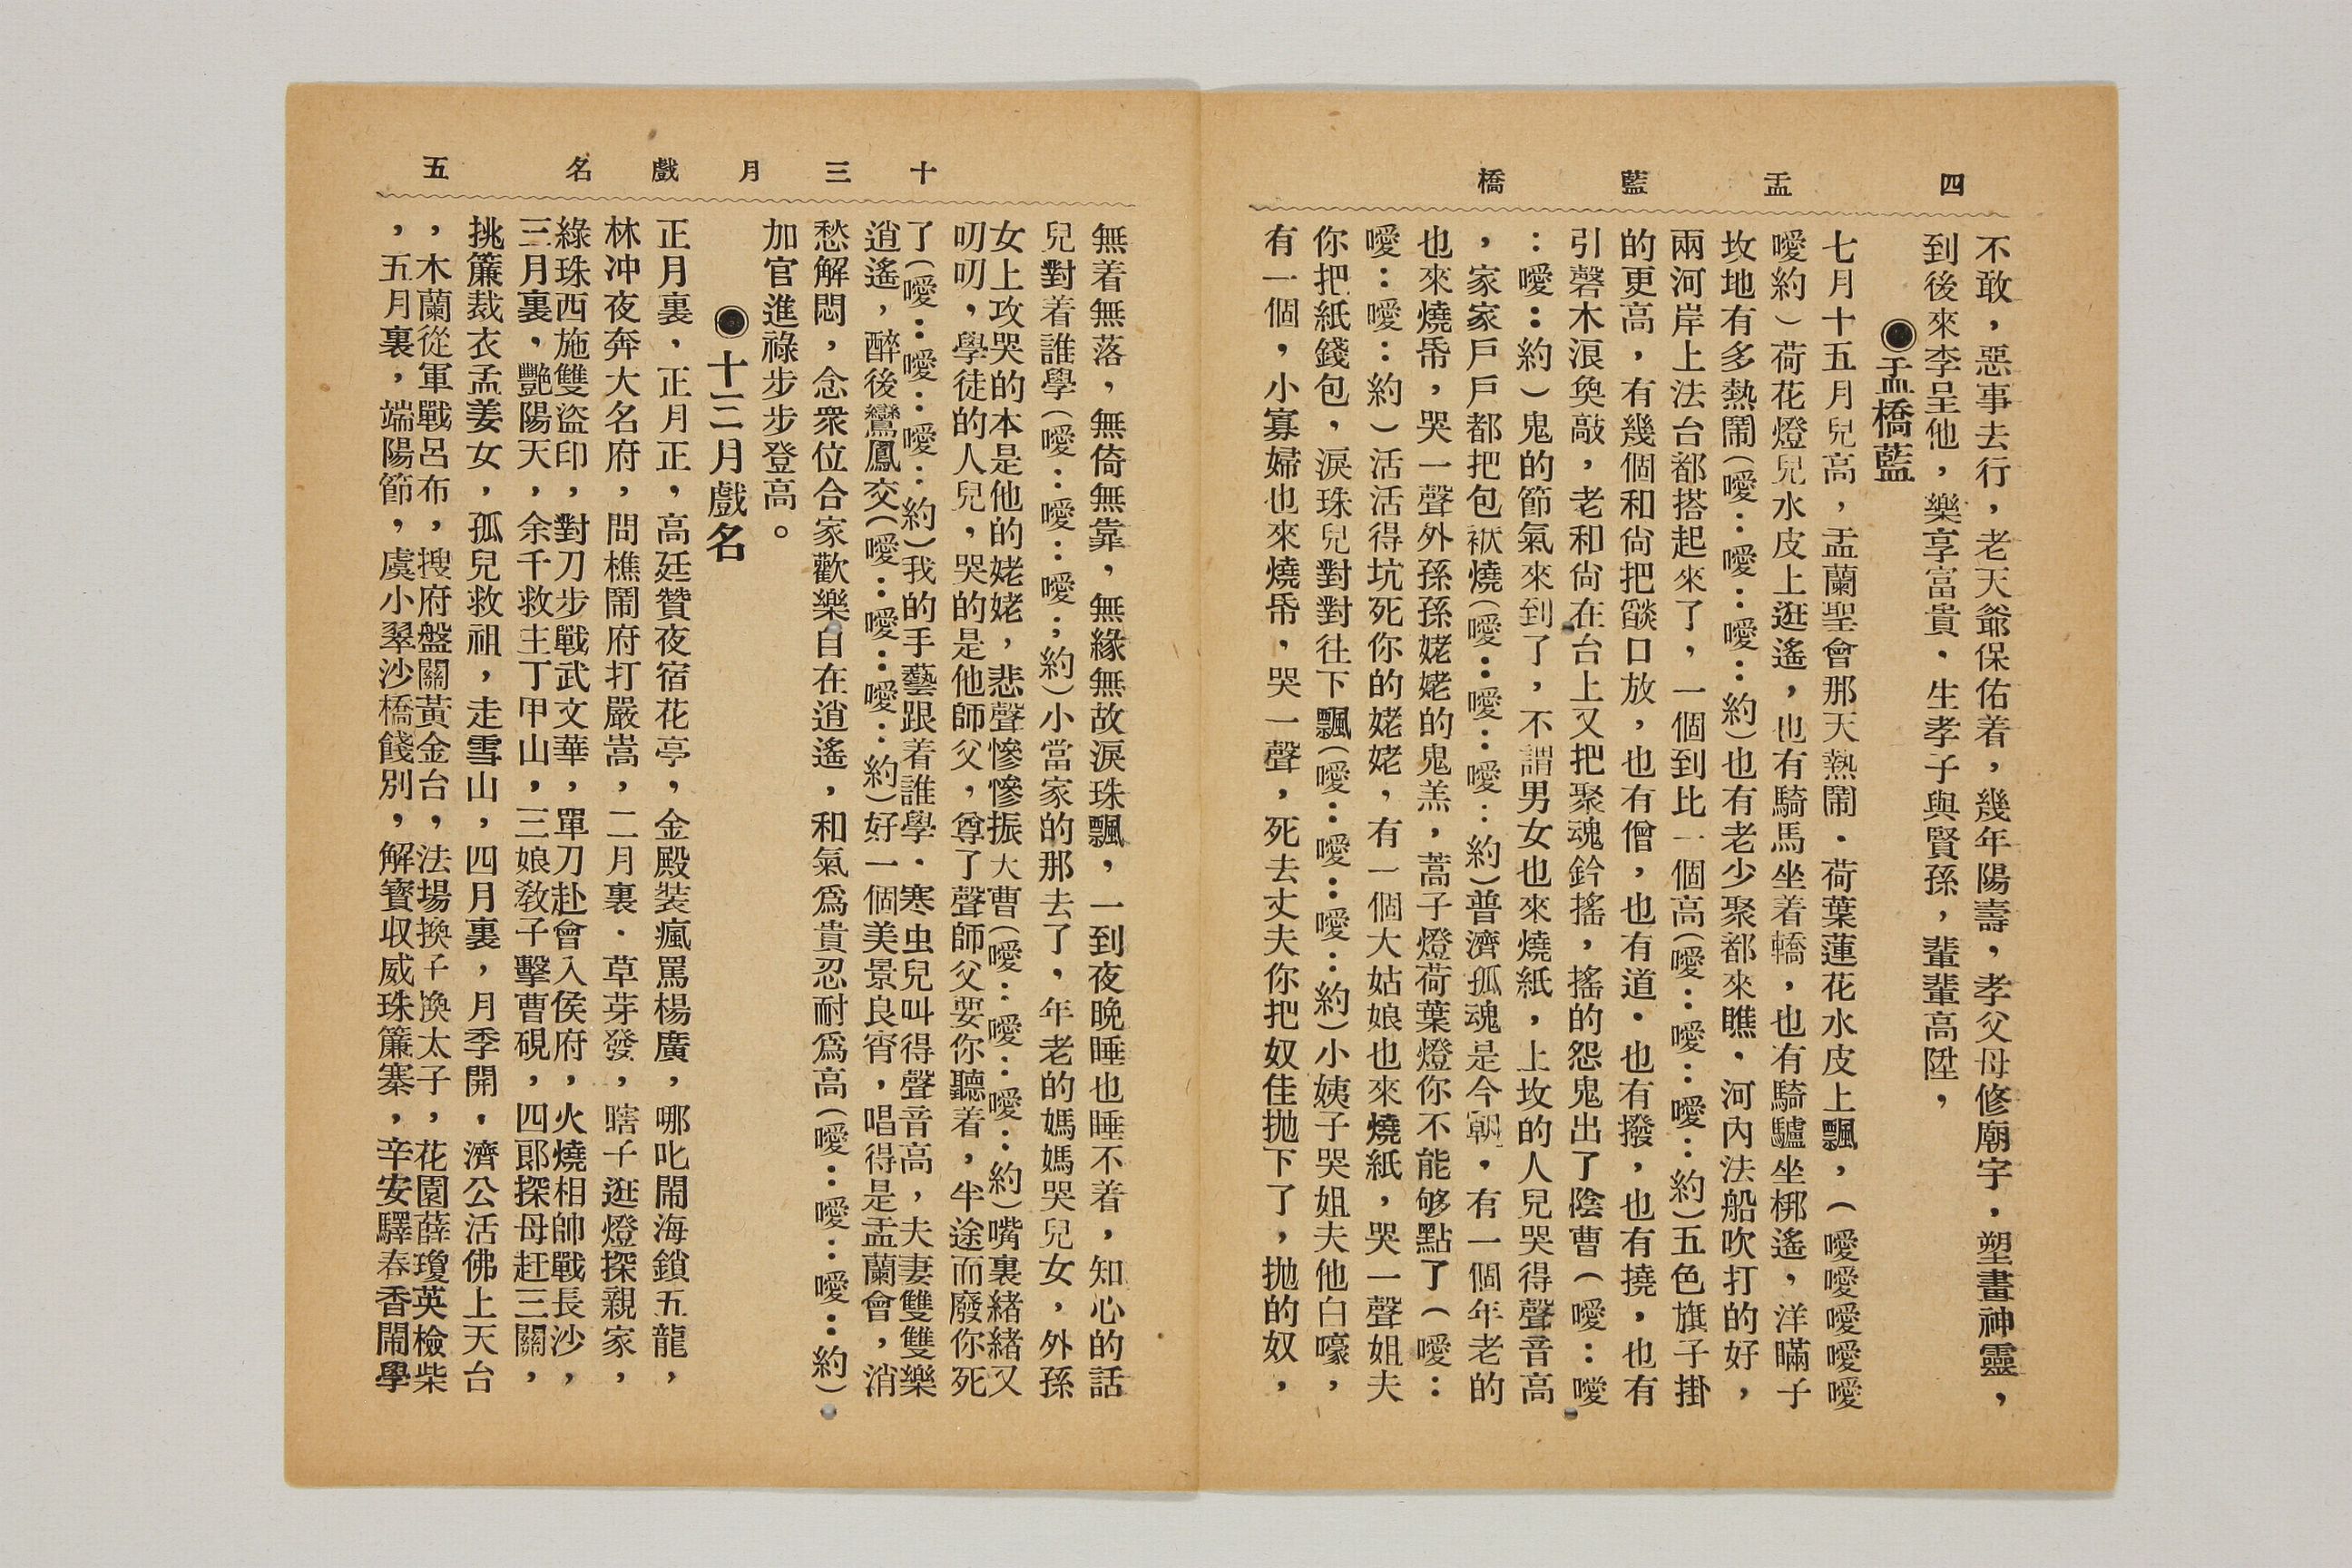 四　盂藍橋
不敢，惡事去行，老天爺保佑着，幾年陽壽，孝父母修廟宇，塑畫神靈，
到後來李呈他，樂享富貴，生孝子與賢孫，輩輩高陞，
◉盂橋藍
七月十五月兒高，盂蘭聖會那天熱鬧．荷葉蓮花水皮上飄，（噯噯噯噯噯
噯約）荷花燈兒水皮上逛遙，也有騎馬坐着轎，也有騎驢坐梆遙，洋瞞子
坟地有多熱鬧（噯：噯：噯：約）也有老少聚都來瞧．河內法船吹打的好，
兩河岸上法台都搭起來了，一個到比一個高（噯：噯：噯：約）五色旗子掛
的更高，有幾個和尙把燄口放，也有僧，也有道．也有撥，也有撓，也有
引磬木浪奐敲，老和尙在台上又把聚魂鈴搖，搖的怨鬼出了陰曹（噯：噯
：噯：約）鬼的節氣來到了，不謂男女也來燒紙，上坟的人兒哭得聲音高
，家家戶戶都把包袱燒（噯：噯：噯：約）普濟孤魂是今朝，有一個年老的
也來燒帋，哭一聲外孫孫姥姥的鬼羔，蒿子燈荷葉燈你不能够點了（噯：
噯：噯：約）活活得坑死你的姥姥，有一個大姑娘也來燒紙，哭一聲姐夫
你把紙錢包，淚珠兒對對往下飄（噯：噯：噯：約）小姨子哭姐夫他白嚎，
有一個，小寡婦也來燒帋，哭一聲，死去丈夫你把奴佳抛下了，抛的奴，
十三月戲名　五
無着無落，無倚無靠，無緣無故淚珠飄，一到夜晚睡也睡不着，知心的話
兒對着誰學（噯：噯：噯；約）小當家的那去了，年老的媽媽哭兒女，外孫
女上攻哭的本是他的姥姥，悲聲慘慘振大曹（噯：噯：噯：約）嘴裏緒緒又
叨叨，學徒的人兒，哭的是他師父，尊了聲師父要你聽着，半途而廢你死
了（噯：噯：噯：約）我的手藝跟着誰學．寒虫兒叫得聲音高，夫妻雙雙樂
逍遙，醉後鸞鳳交（噯：噯：噯：約）好一個美景良宵，唱得是盂蘭會，消
愁解悶，念衆位合家歡樂自在逍遙，和氣爲貴忍耐爲高（噯：噯：噯：約）
加官進祿步步登高。
◉十三月戲名
正月裏，正月正，高廷贊夜宿花亭，金殿裝瘋罵楊廣，哪叱鬧海鎖五龍，
林冲夜奔大名府，問樵鬧府打嚴嵩，二月裏．草芽發，瞎子逛燈探親家，
綠珠西施雙盜印，對刀步戰武文華，單刀赴會入侯府，火燒相帥戰長沙，
三月裏，艷陽天，余千救主丁甲山，三娘敎子擊曹硯，四郎探母赶三關，
挑簾裁衣孟姜女，孤兒救祖，走雪山，四月裏，月季開，濟公活佛上天台
，木蘭從軍戰呂布，搜府盤關黃金台，法場換子換太子，花園薛瓊英檢柴
，五月裏，端陽節，虞小翠沙橋餞別，解寳収威珠簾寨，辛安驛春香鬧學